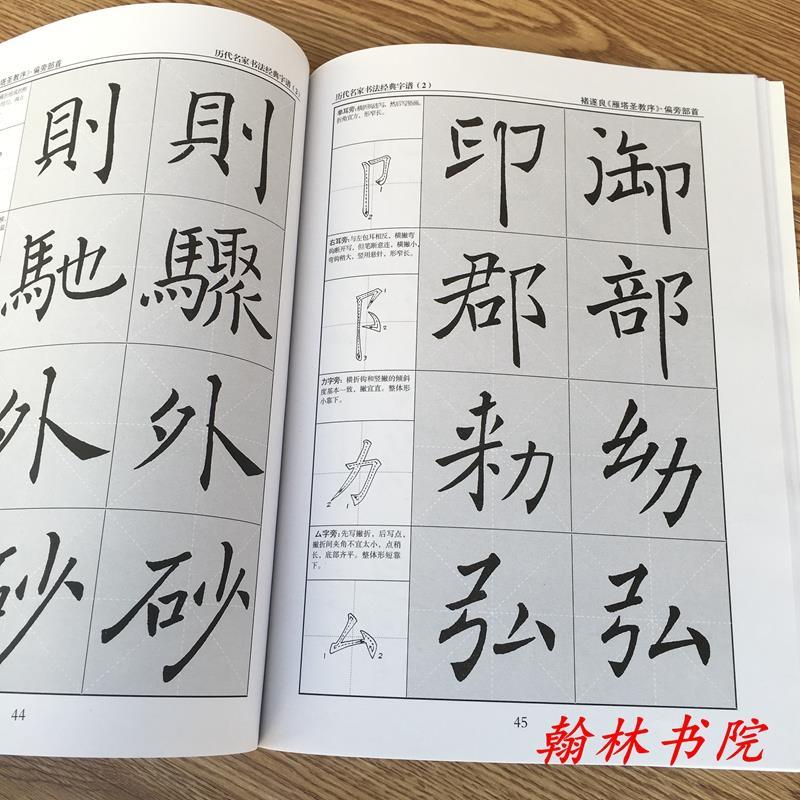 塔圣教序》·偏旁部首
历代名家书法经典字谱(2)
則 則
馳 驟
外 外
砂 砂
44
历代名家书法经典字谱(2)
褚遂良《雁塔圣教序》·偏旁部首
单耳旁:横折钩连写,然后写竖画,
折角宜方,形窄长。
2
印 御
右耳旁:与左包耳相反,横撇弯
钩断开写,但笔断意连,横撇小,
弯钩稍大,竖用悬针,形窄长。
2
3
郡 部
力字旁:横折钩和竖撇的倾斜
度基本一致,撇宜直。整体形
小靠下。
2 1
勑 幼
厶字旁:先写撇折,后写点,
撇折间夹角不宜太小,点稍
长,底部齐平。整体形短靠
下。
1 2
弘 弘
45
翰林书院